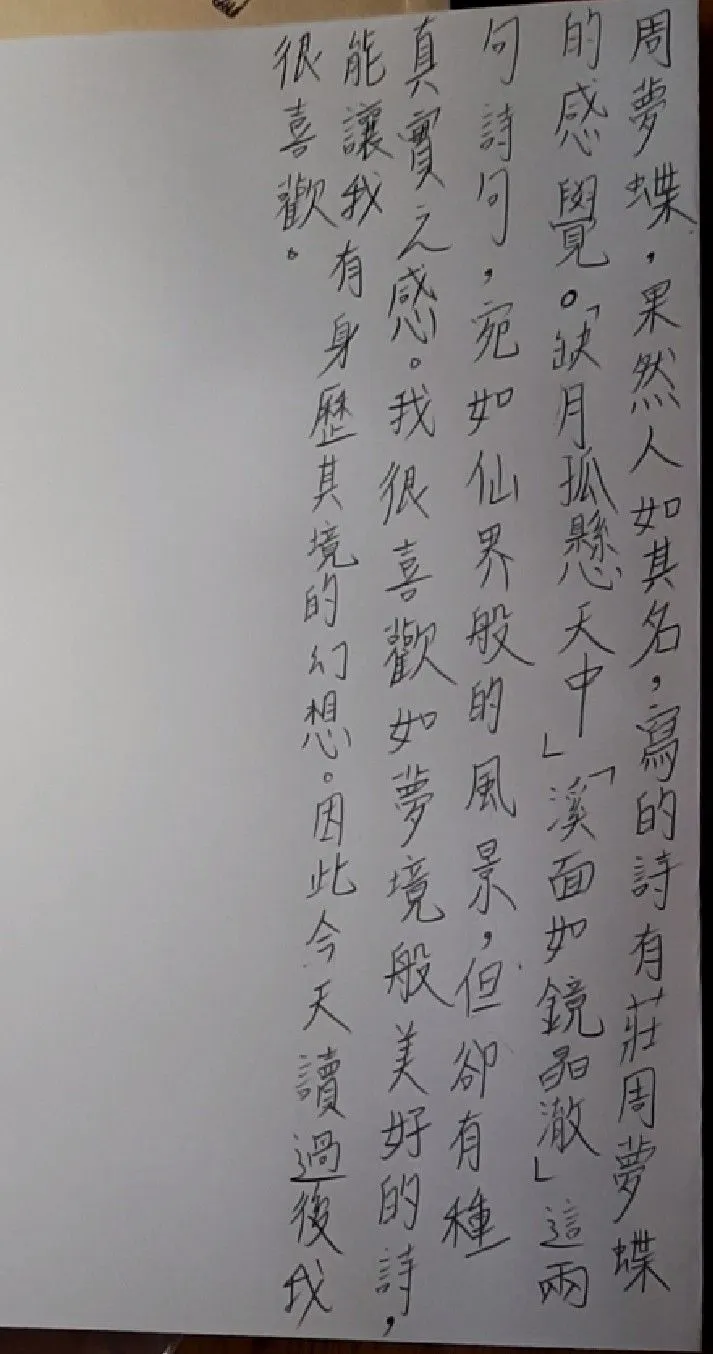 周夢蝶，果然人如其名，寫的詩有莊周夢蝶
的感覺。「缺月孤懸天中」「溪面如鏡晶澈」這兩
句詩句，宛如仙界般的風景，但卻有種
真實之感。我很喜歡如夢境般美好的詩，
能讓我有身歷其境的幻想。因此今天讀過後我
很喜歡。